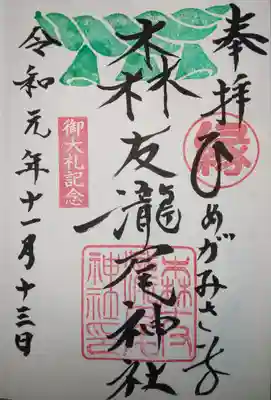 奉拝
縁
ひめがみさま
森友瀧尾神社
御大礼記念
令和元年十一月十三日